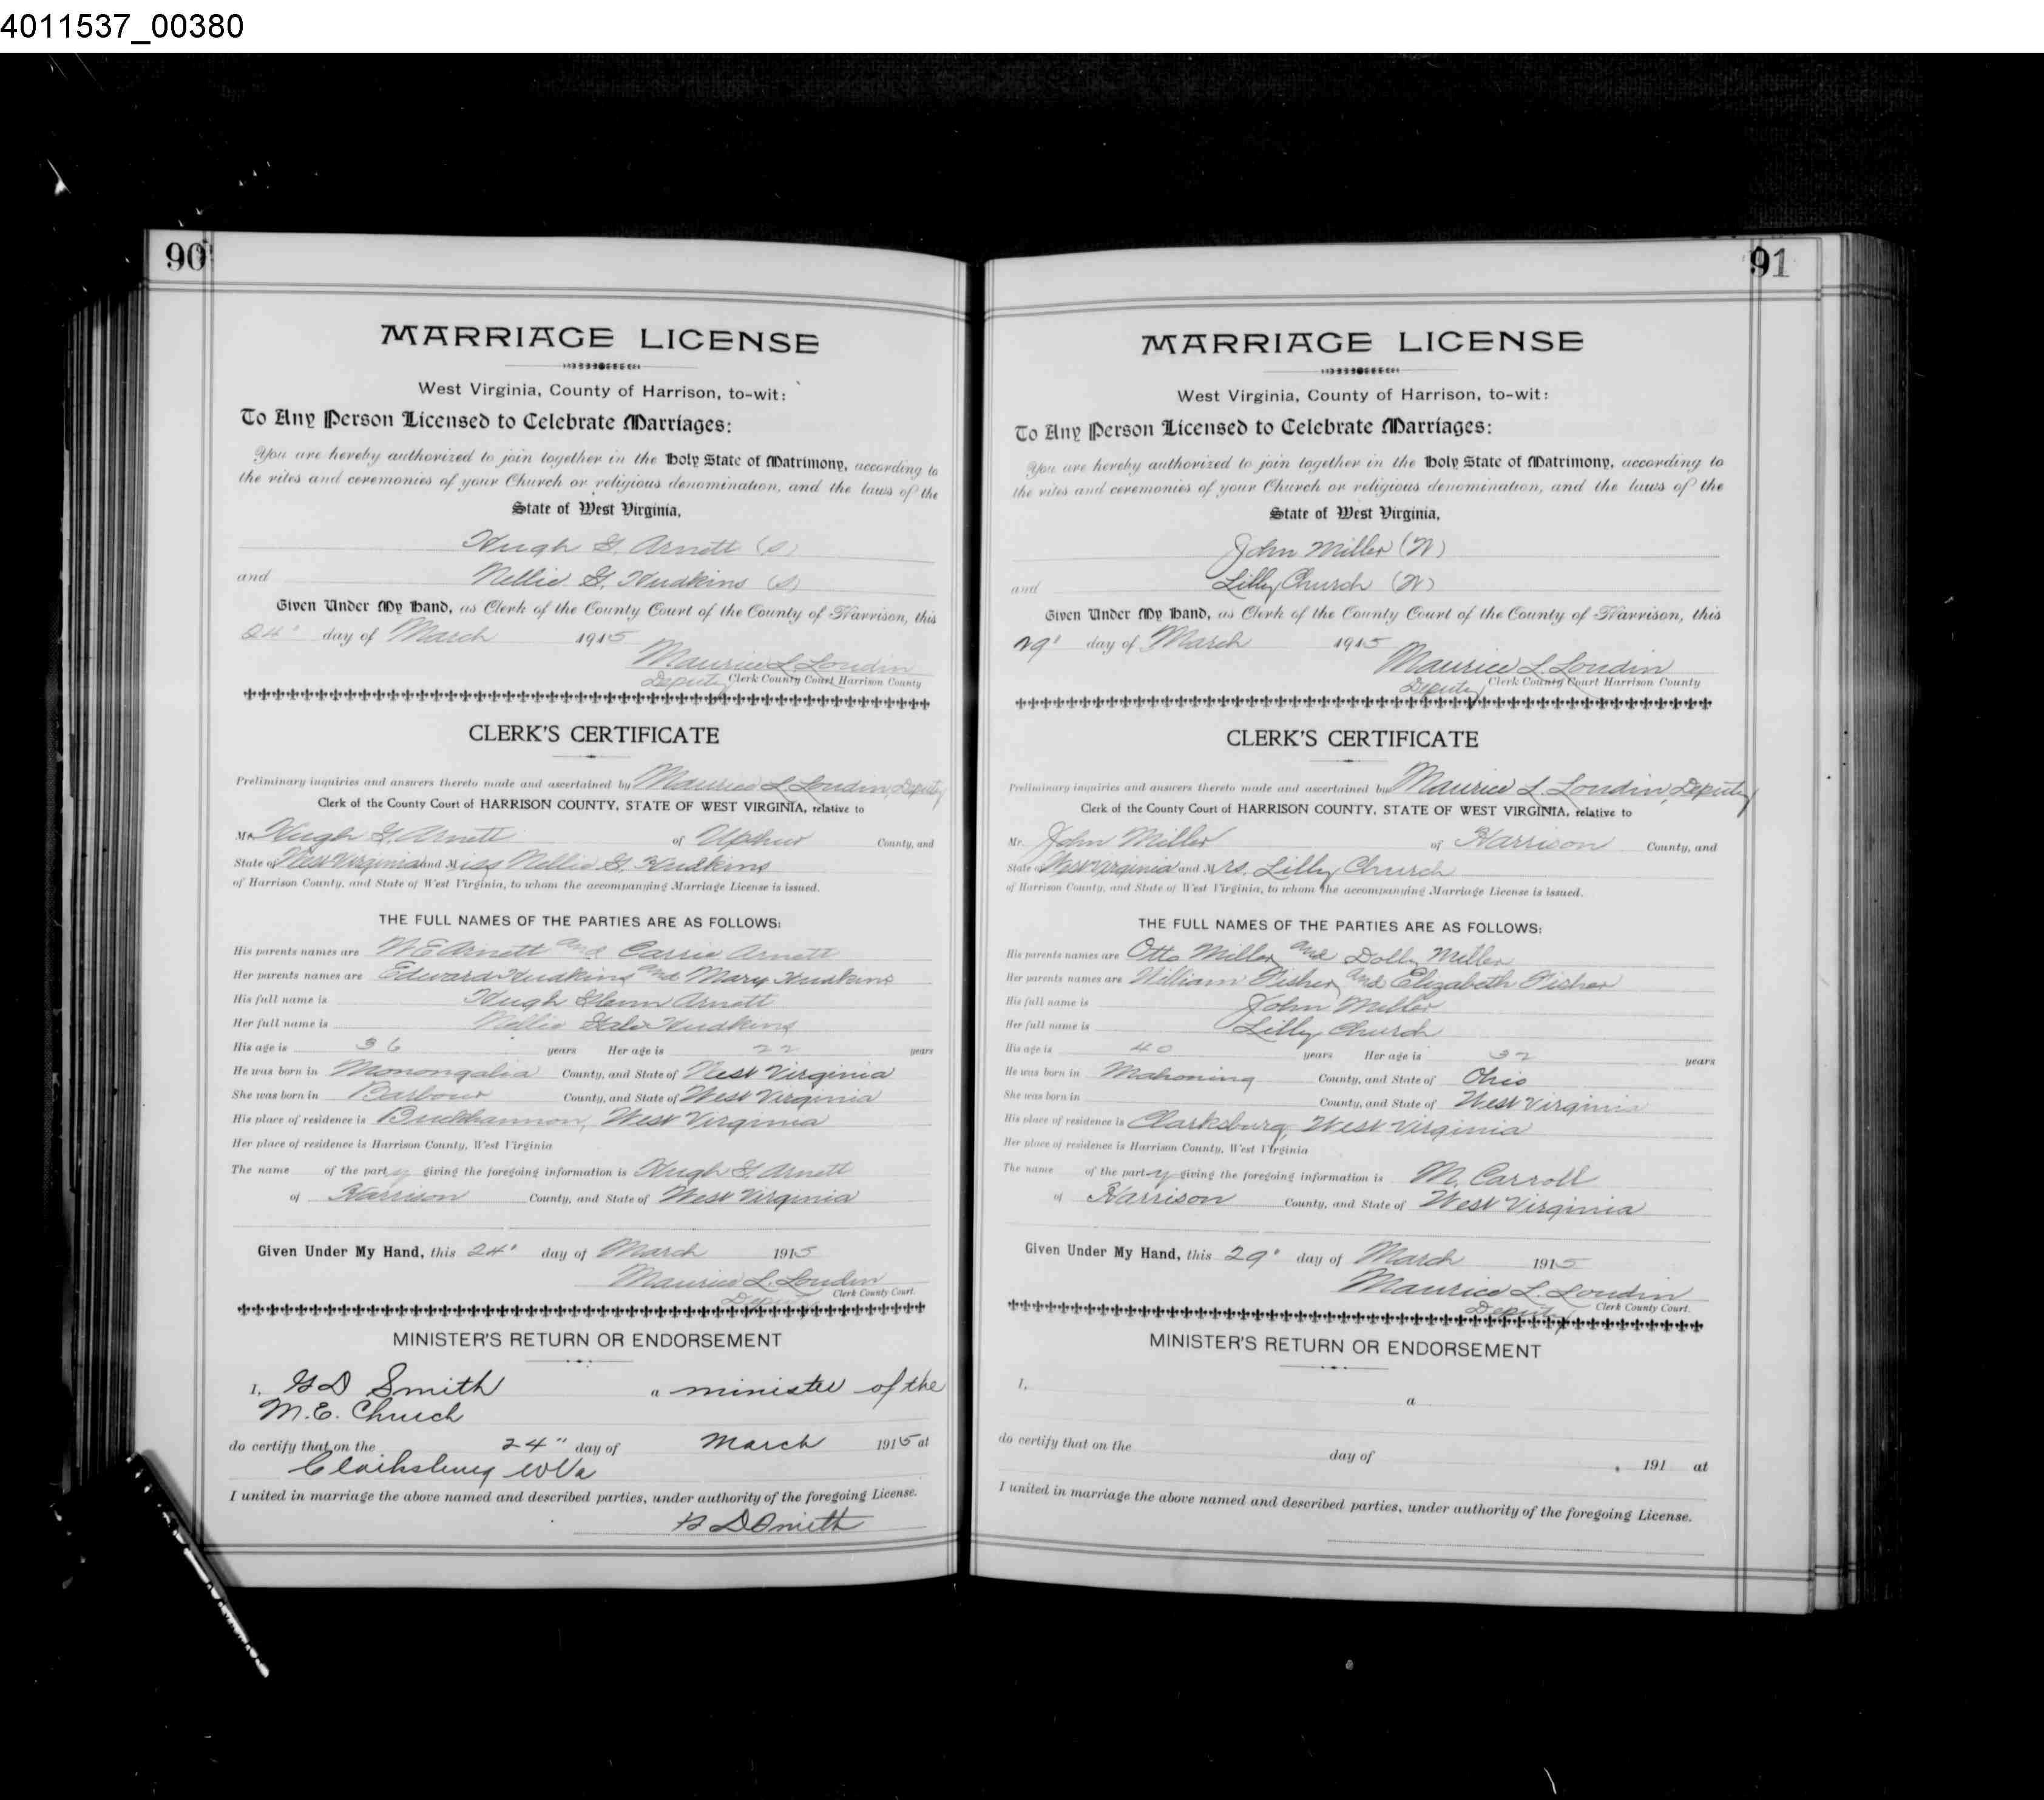 4011537_00380
90
MARRIAGE LICENSE
West Virginia, County of Harrison, to-wit:
To Any Person Licensed to Celebrate Marriages:
You are hereby authorized to join together in the Holy State of Matrimony, according to
the rites and ceremonies of your Church or religious denomination, and the laws of the
State of West Virginia,
Hugh G. Arnett (S)
and Nellie G. Hudkins (S)
Given Under My Hand, as Clerk of the County Court of the County of Harrison, this
24" day of March 1915
Maurice L. Loudin
Deputy Clerk County Court Harrison County
CLERK'S CERTIFICATE
Preliminary inquiries and answers thereto made and ascertained by Maurice L. Loudin, Deputy
Clerk of the County Court of HARRISON COUNTY, STATE OF WEST VIRGINIA, relative to
Mr. Hugh G. Arnett of Upshur County, and
State of West Virginia and Miss Nellie G. Hudkins
of Harrison County, and State of West Virginia, to whom the accompanying Marriage License is issued.
THE FULL NAMES OF THE PARTIES ARE AS FOLLOWS:
His parents names are W E Arnett and Carrie Arnett
Her parents names are Edward Hudkins and Mary Hudkins
His full name is Hugh Glenn Arnett
Her full name is Nellie Gale Hudkins
His age is 36 years Her age is 22 years
He was born in Monongalia County, and State of West Virginia
She was born in Barbour County, and State of West Virginia
His place of residence is Buckhannon, West Virginia
Her place of residence is Harrison County, West Virginia
The name of the party giving the foregoing information is Hugh G. Arnett
of Harrison County, and State of West Virginia
Given Under My Hand, this 24" day of March 1915
Maurice L. Loudin
Deputy Clerk County Court.
MINISTER'S RETURN OR ENDORSEMENT
I, G D Smith a minister of the
M.E. Church
do certify that on the 24" day of March 1915 at
Clarksburg W Va
I united in marriage the above named and described parties, under authority of the foregoing License.
G D Smith
91
MARRIAGE LICENSE
West Virginia, County of Harrison, to-wit:
To Any Person Licensed to Celebrate Marriages:
You are hereby authorized to join together in the Holy State of Matrimony, according to
the rites and ceremonies of your Church or religious denomination, and the laws of the
State of West Virginia,
John Miller (W)
and Lilly Church (W)
Given Under My Hand, as Clerk of the County Court of the County of Harrison, this
29" day of March 1915
Maurice L. Loudin
Deputy Clerk County Court Harrison County
CLERK'S CERTIFICATE
Preliminary inquiries and answers thereto made and ascertained by Maurice L. Loudin, Deputy
Clerk of the County Court of HARRISON COUNTY, STATE OF WEST VIRGINIA, relative to
Mr. John Miller of Harrison County, and
State of West Virginia and Mrs. Lilly Church
of Harrison County, and State of West Virginia, to whom the accompanying Marriage License is issued.
THE FULL NAMES OF THE PARTIES ARE AS FOLLOWS:
His parents names are Otto Miller and Dolly Miller
Her parents names are William Fisher and Elizabeth Fisher
His full name is John Miller
Her full name is Lilly Church
His age is 40 years Her age is 32 years
He was born in Mahoning County, and State of Ohio
She was born in County, and State of West Virginia
His place of residence is Clarksburg, West Virginia
Her place of residence is Harrison County, West Virginia
The name of the party giving the foregoing information is M. Carroll
of Harrison County, and State of West Virginia
Given Under My Hand, this 29" day of March 1915
Maurice L. Loudin
Deputy Clerk County Court.
MINISTER'S RETURN OR ENDORSEMENT
I,
a
do certify that on the
day of , 191 at
I united in marriage the above named and described parties, under authority of the foregoing License.